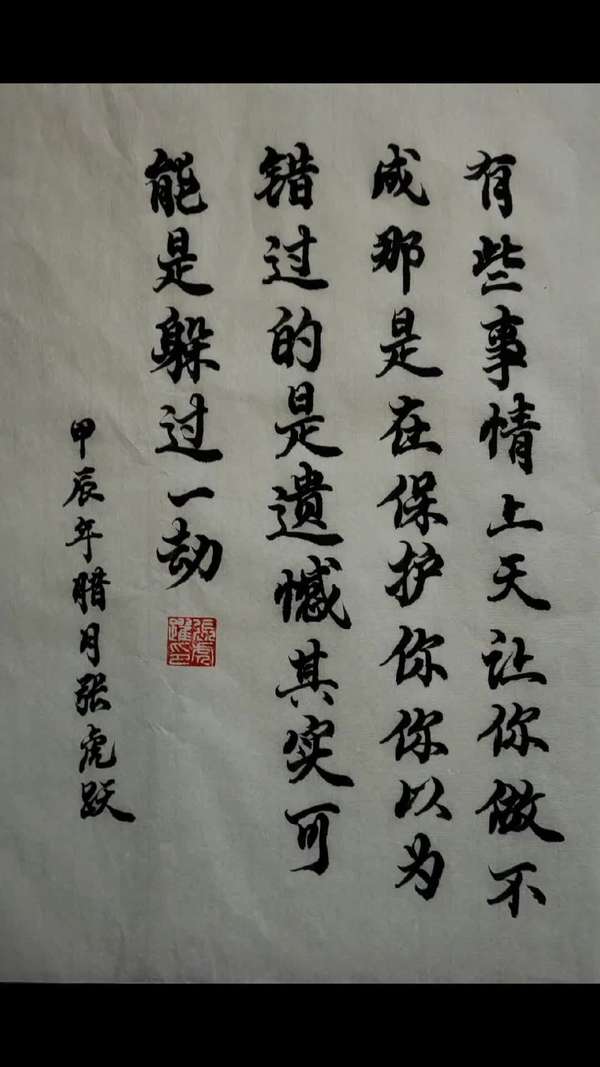 有些事情上天让你做不
成那是在保护你你以为
错过的是遗憾其实可
能是躲过一劫
甲辰年腊月张虎跃
張虎躍印